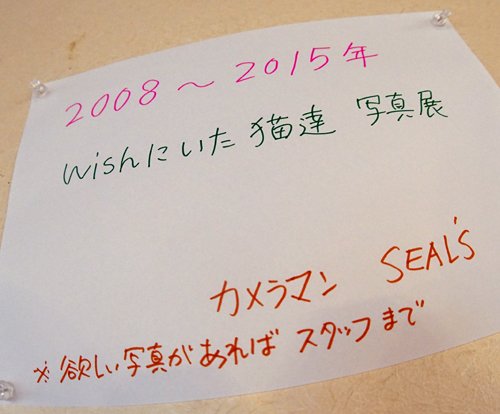 2008～2015年
wishにいた猫達 写真展
カメラマン SEAL'S
※欲しい写真があれば スタッフまで